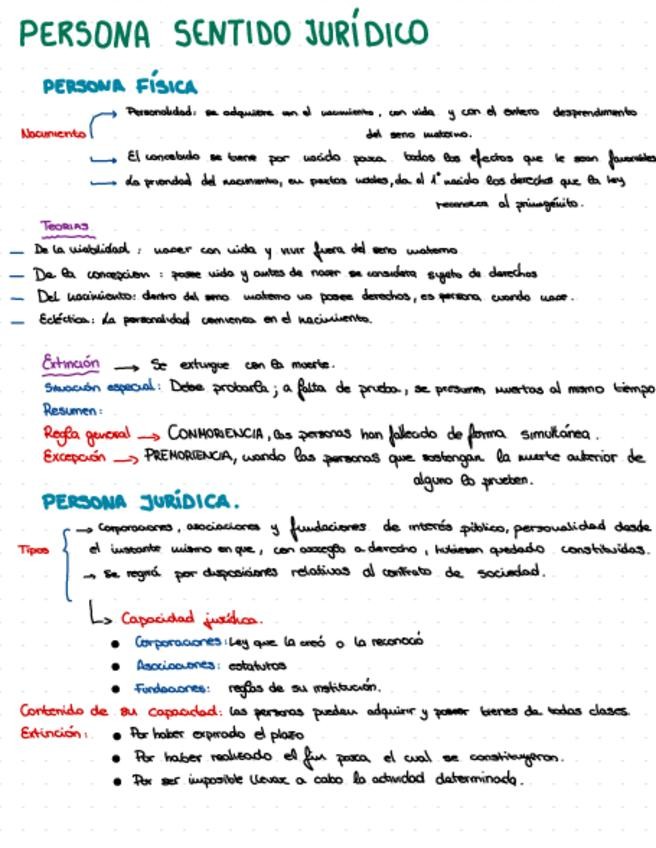 PERSONA SENTIDO JURÍDICO
PERSONA FÍSICA
Nacimiento
Personalidad: se adquiere con el nacimiento, con vida y con el entero desprendimento
del seno materno.
El concebido se tiene por nacido para todos los efectos que le sean favorables
La prioridad del nacimiento, en partos dobles, da al 1º nacido los derechos que la ley
reconozca al primogénito.
TEORIAS
— De la viabilidad: nacer con vida y vivir fuera del seno materno
— De la concepcion: posee vida y antes de nacer se considera sujeto de derechos
— Del nacimiento: dentro del seno materno no posee derechos, es persona cuando nace.
— Ecléctica: La personalidad comienza en el nacimiento.
Extinción → Se extingue con la muerte.
Situación especial: Debe probarla; a falta de prueba, se presumen muertas al mismo tiempo
Resumen:
Regla general → CONMORIENCIA, las personas han fallecido de forma simultánea.
Excepción → PREMORIENCIA, cuando las personas que sostengan la muerte anterior de
alguno lo prueben.
PERSONA JURÍDICA.
Tipos
→ Corporaciones, asociaciones y fundaciones de interés público, personalidad desde
el instante mismo en que, con arreglo a derecho, hubiesen quedado constituidas.
→ Se regirá por disposiciones relativas al contrato de sociedad.
↳ Capacidad jurídica.
• Corporaciones: Ley que la creó o la reconoció
• Asociaciones: estatutos
• Fundaciones: reglas de su institución.
Contenido de su capacidad: las personas pueden adquirir y poseer bienes de todas clases.
Extinción: • Por haber expirado el plazo
• Por haber realizado el fin para el cual se constituyeron.
• Por ser imposible llevar a cabo la actividad determinada.